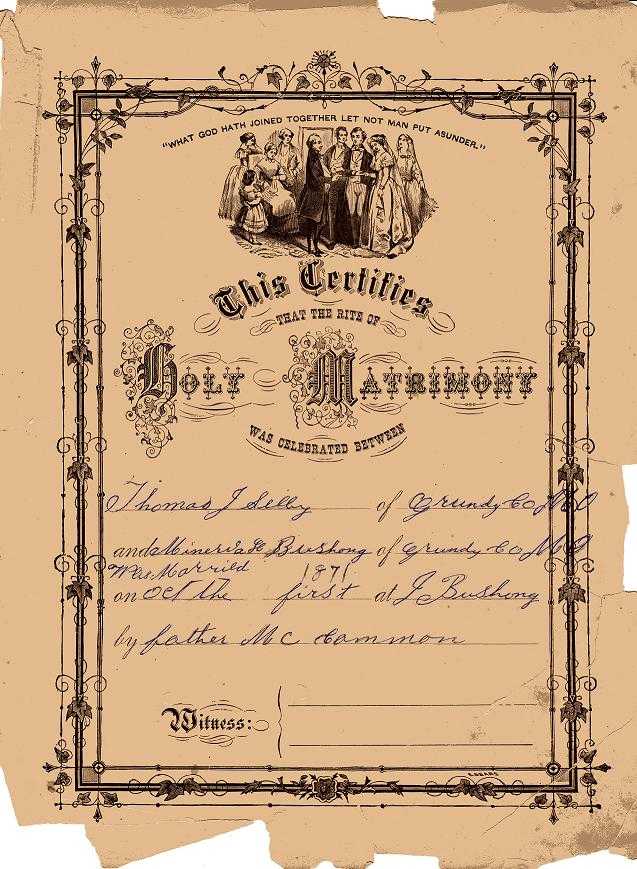 "WHAT GOD HATH JOINED TOGETHER LET NOT MAN PUT ASUNDER."
This Certifies
THAT THE RITE OF
HOLY MATRIMONY
WAS CELEBRATED BETWEEN
Thomas J Selby of Grundy Co MO
and Bushong of Grundy Co MO
Was Marrild 1871
on Oct the first at J Bushong
by father Mc Cammon
Witness: